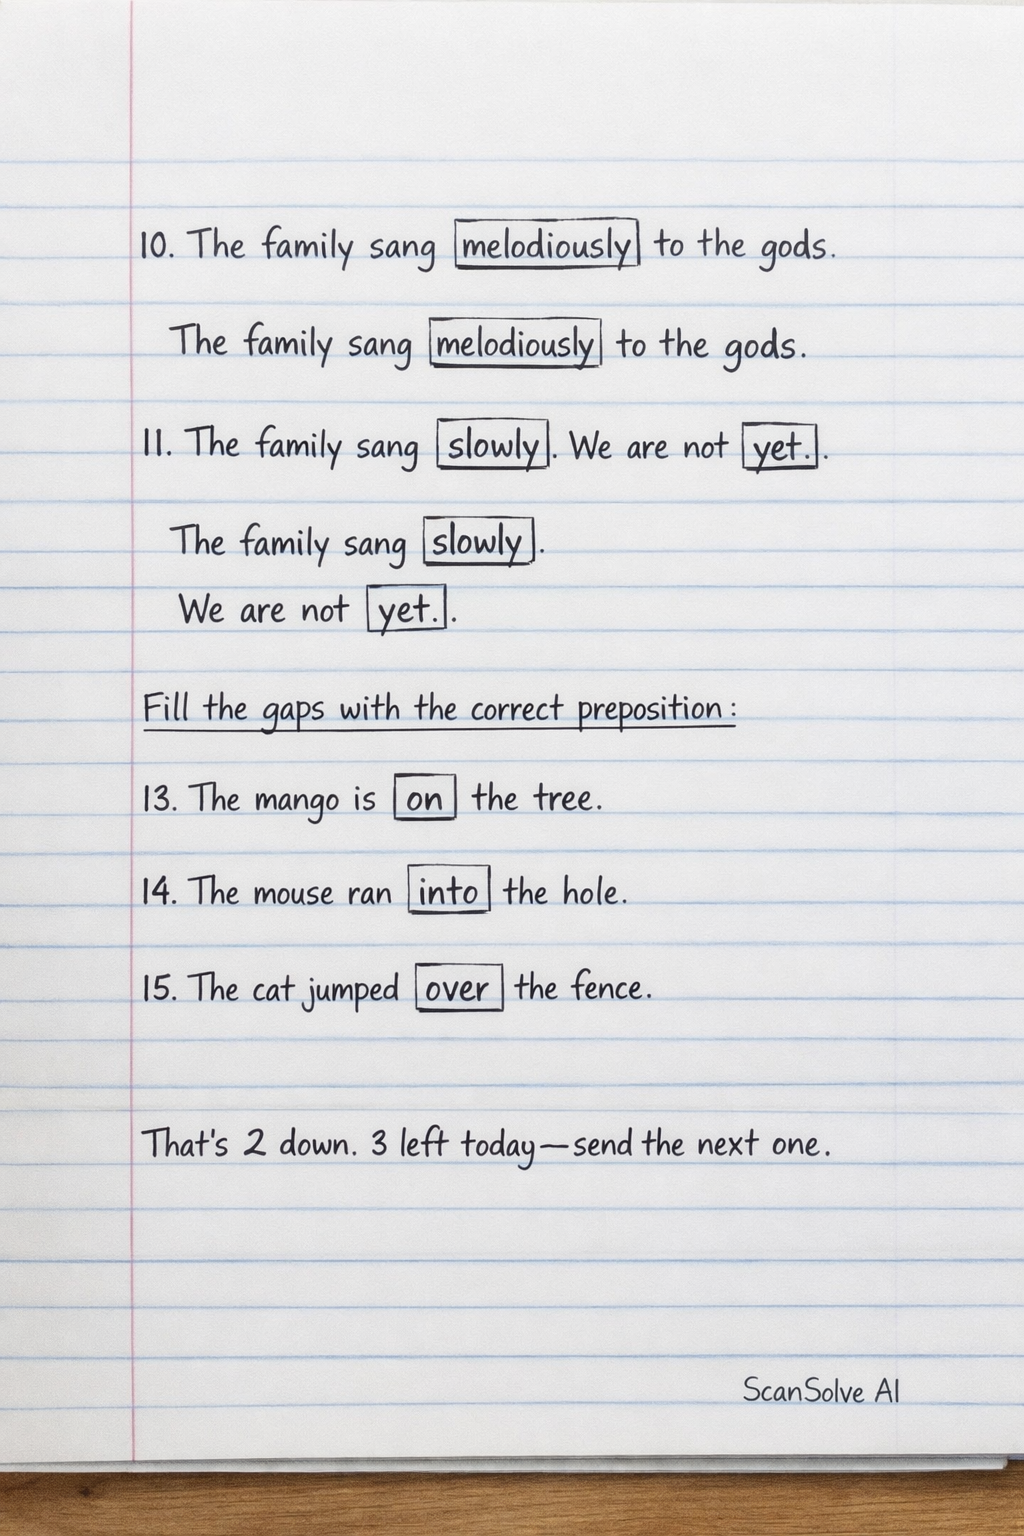 10. The family sang melodiously to the gods.
The family sang melodiously to the gods.
11. The family sang slowly. We are not yet..
The family sang slowly.
We are not yet..
Fill the gaps with the correct preposition:
13. The mango is on the tree.
14. The mouse ran into the hole.
15. The cat jumped over the fence.
That's 2 down. 3 left today—send the next one.
ScanSolve AI